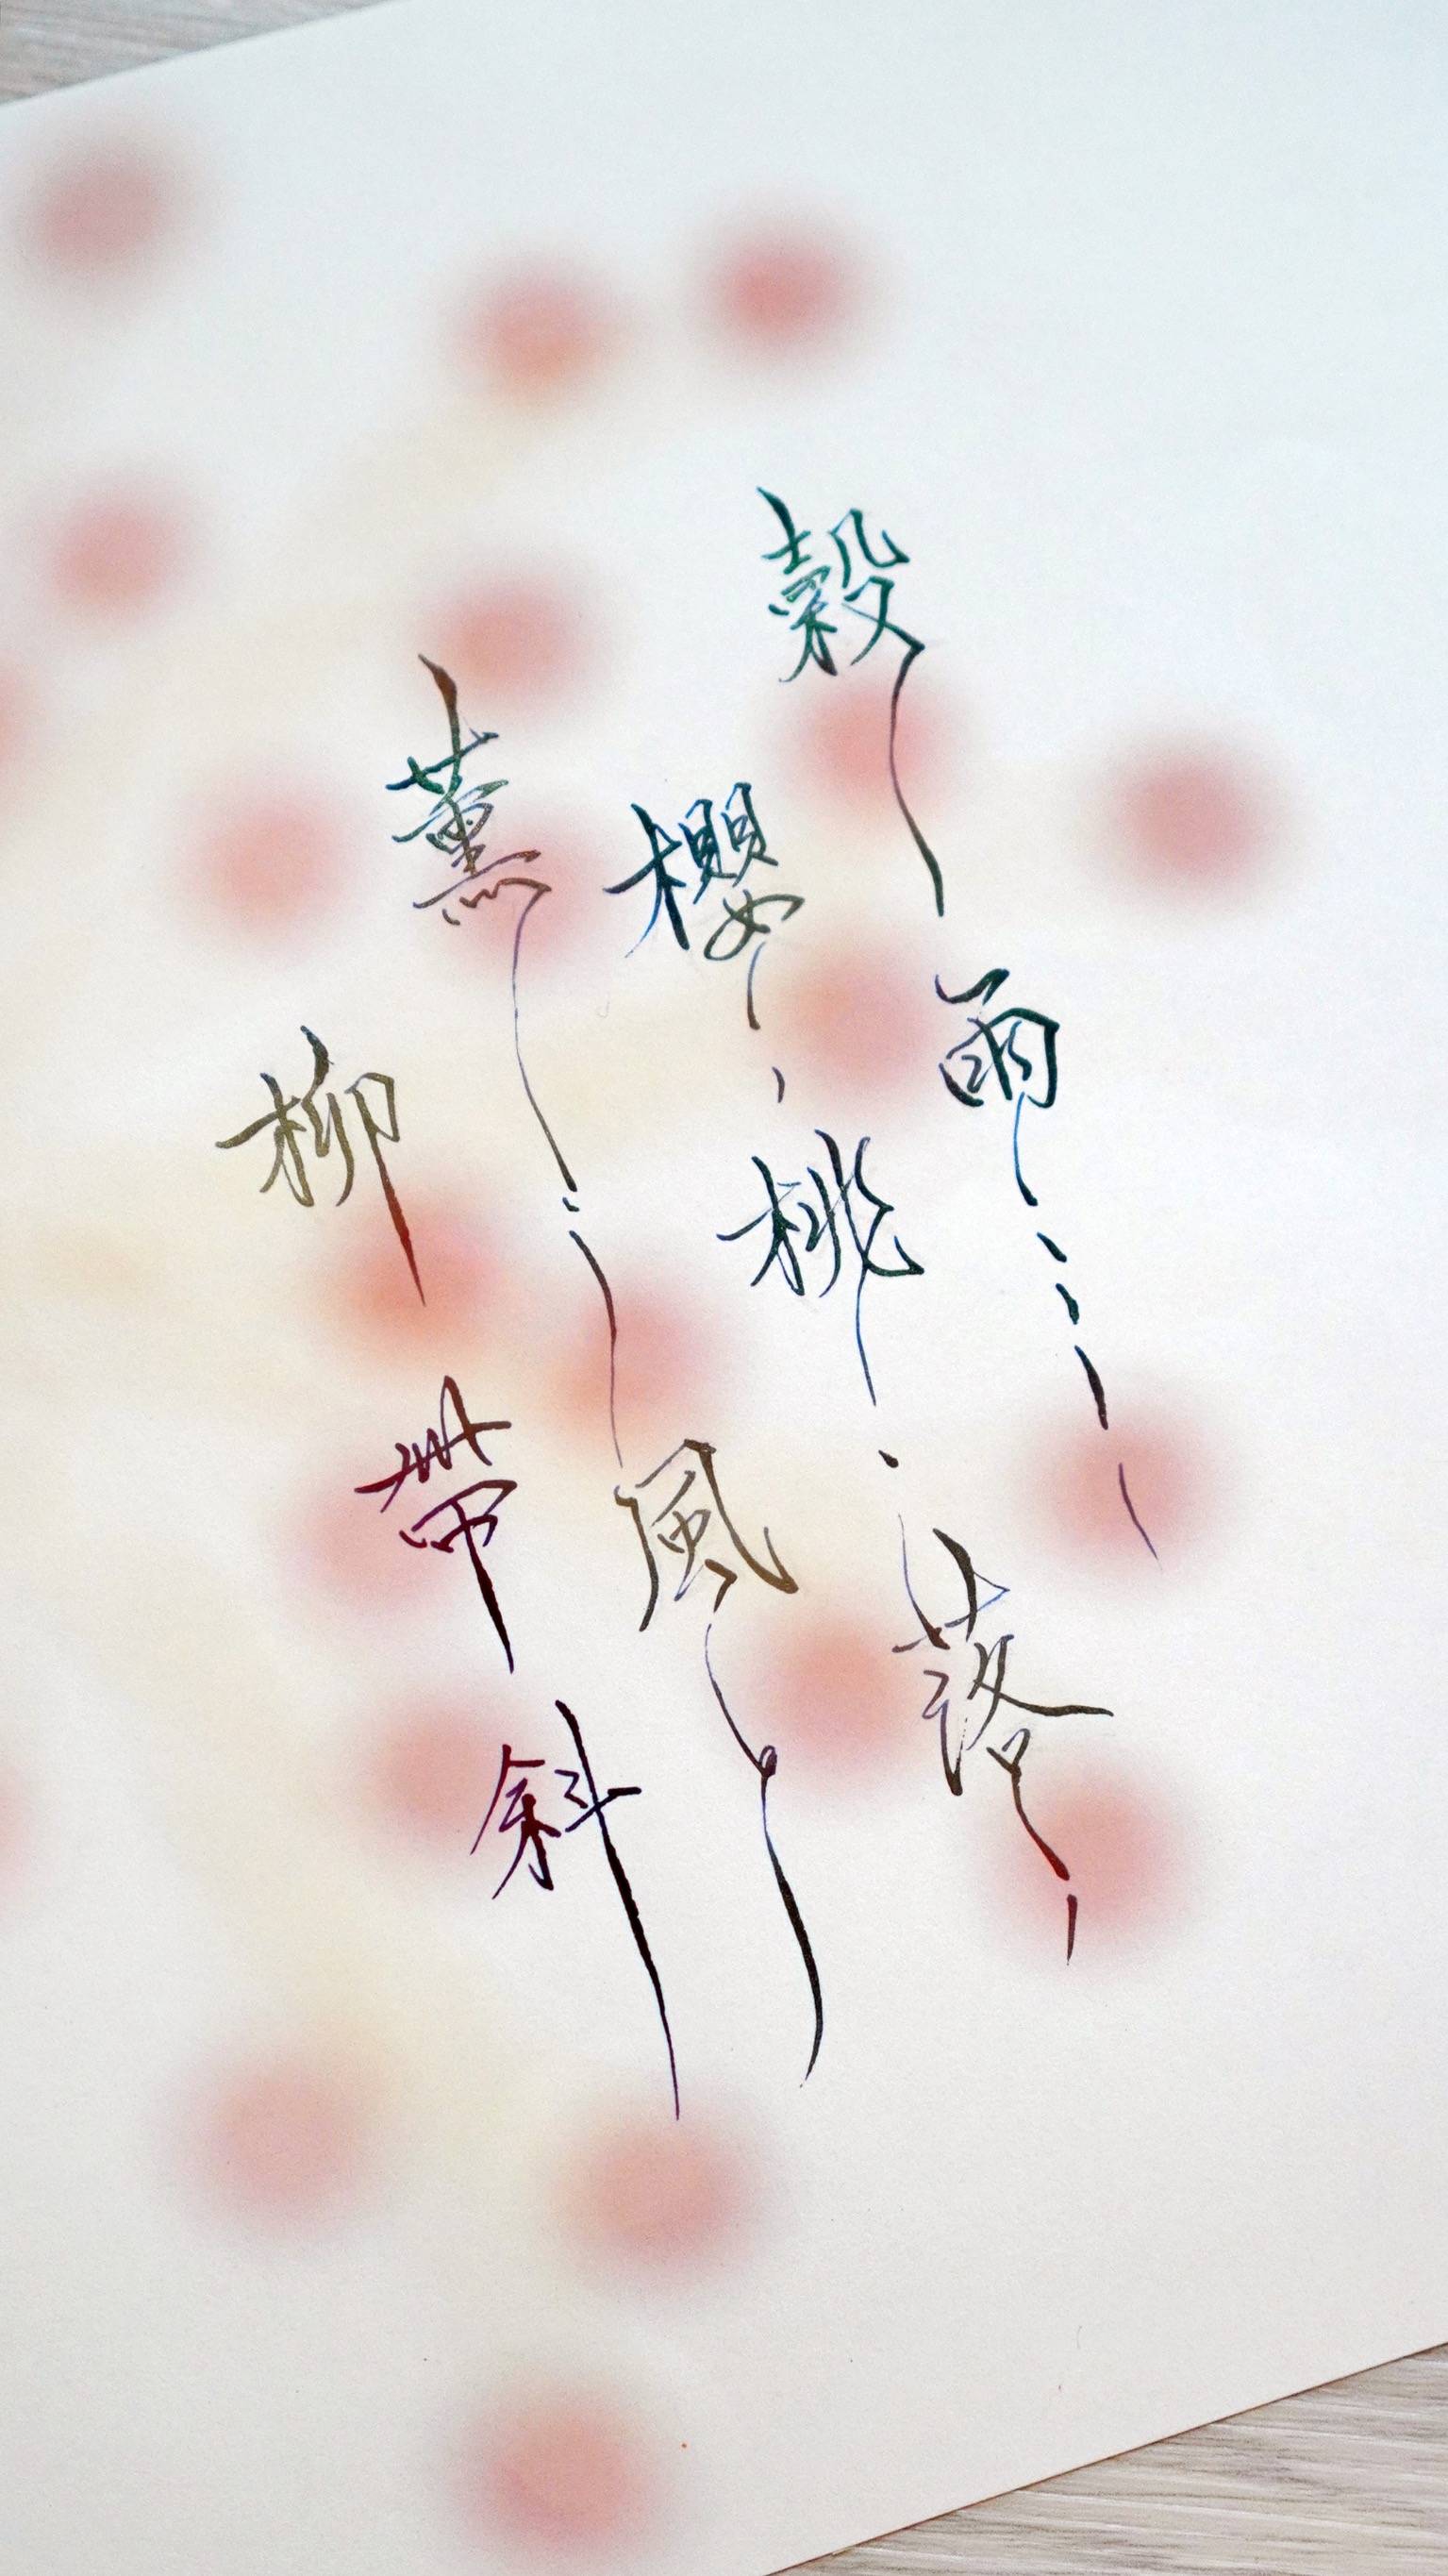 穀雨
櫻桃落
薰風
柳帶斜